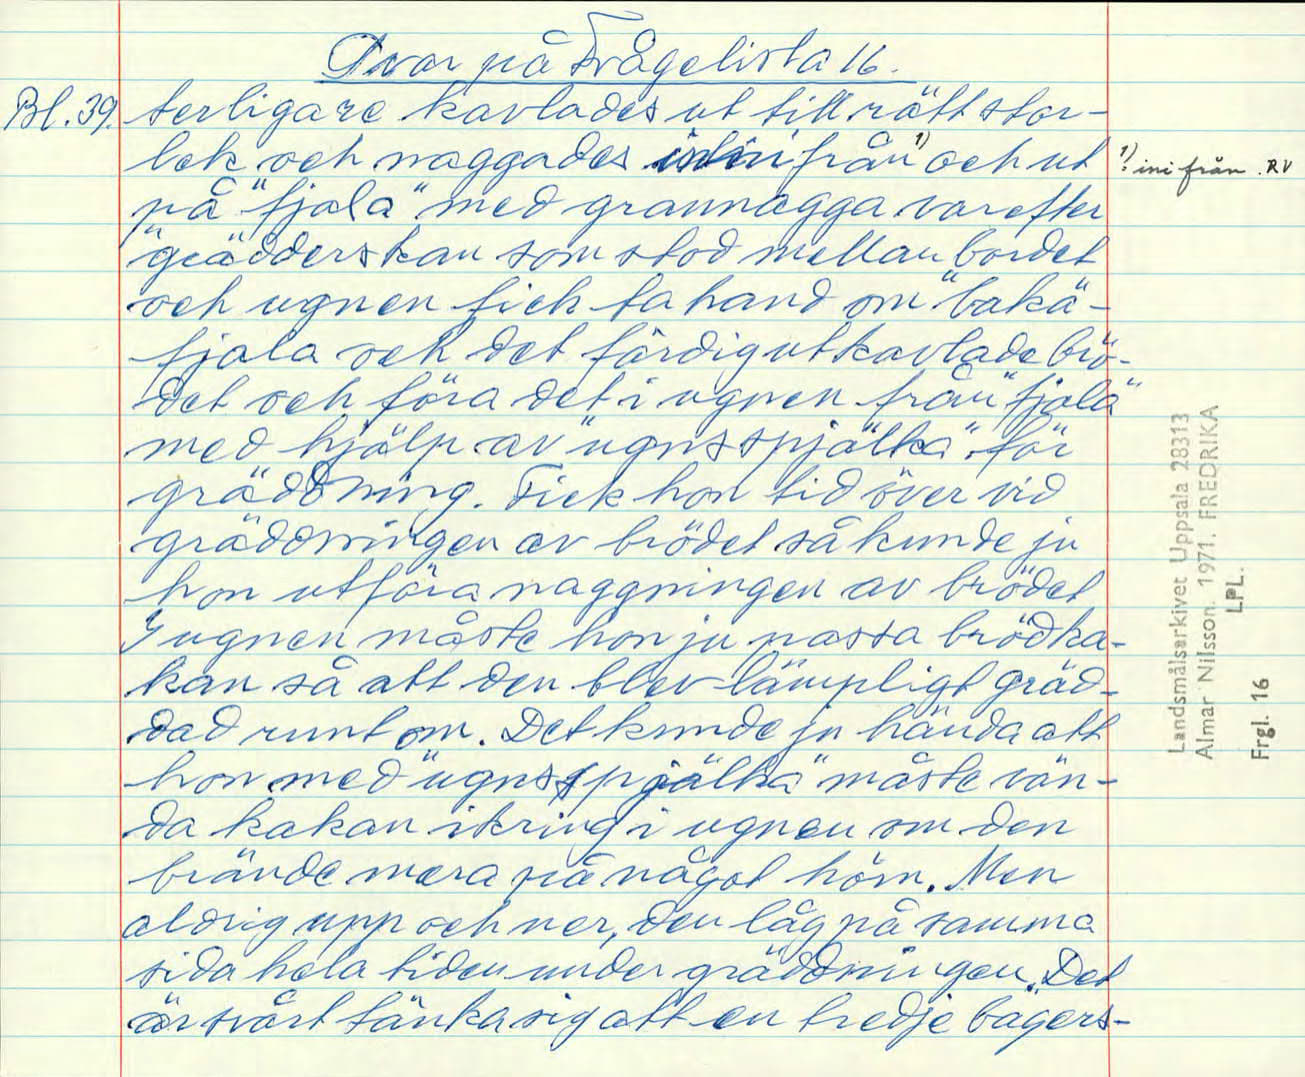 Svar på Frågelista 16.
Bl. 39. terligare kavlades ut till rätt stor-
lek och naggades från 1) och ut
1) ? ini från. RV
på "fjala" med grannagga varefter
"gräädderskan som stod mellan bordet
och ugnen fick ta hand om "bakä-
fjala och det färdigutkavlade brö-
det och föra det i ugnen från "fjala"
med hjälp av "ugnsspjälka" för
gräddning. Fick hon tid över vid
gräddningen av brödet så kunde ju
hon utföra naggningen av brödet
I ugnen måste hon ju passa brödka-
kan så att den blev lämpligt gräd-
dad runt om. Det kunde ju hända att
hon med "ugnsspjälka" måste vän-
da kakan ikring i ugnen om den
brände mera på något hörn. Men
aldrig upp och ner, den låg på samma
sida hela tiden under gräddningen. Det
är svårt tänka sig att en tredje bagers-
Landsmålsarkivet Uppsala 28313
Almar Nilsson. 1971. FREDRIKA
LPL.
Frgl. 16